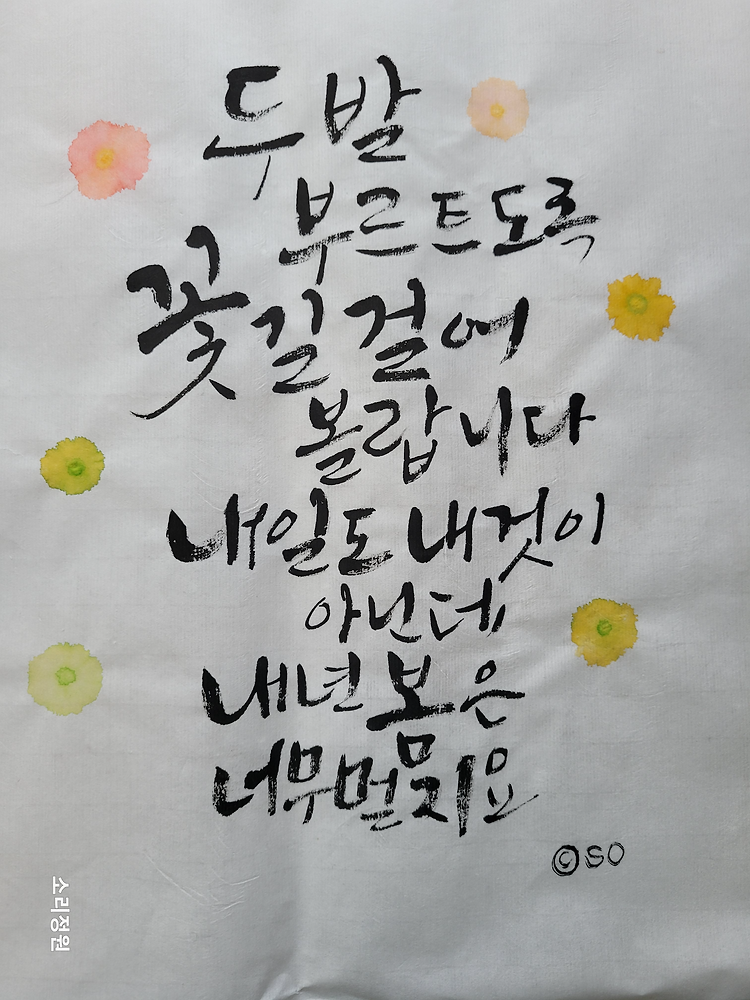 두발
부르트도록
꽃길걸어
볼랍니다
내일도 내것이
아닌데
내년봄은
너무멀지요
©SO
소리정원